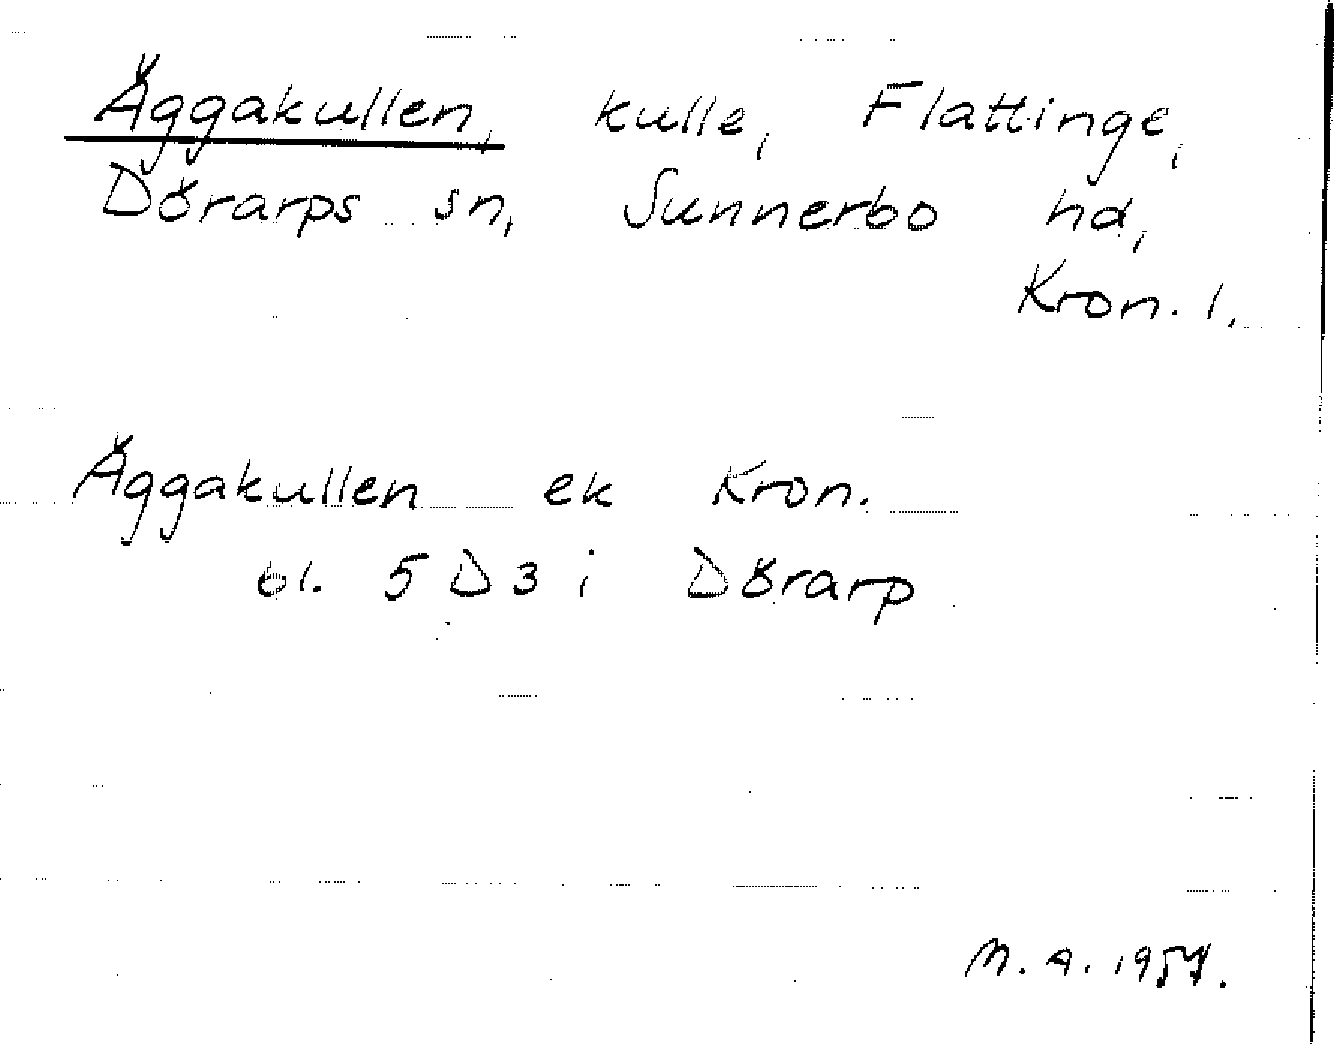 Äggakullen, kulle, Flattinge,
Dörarps sn, Sunnerbo hd,
Kron. l.
Äggakullen ek Kron.
bl. 5 D 3 i Dörarp
M. A. 1957.